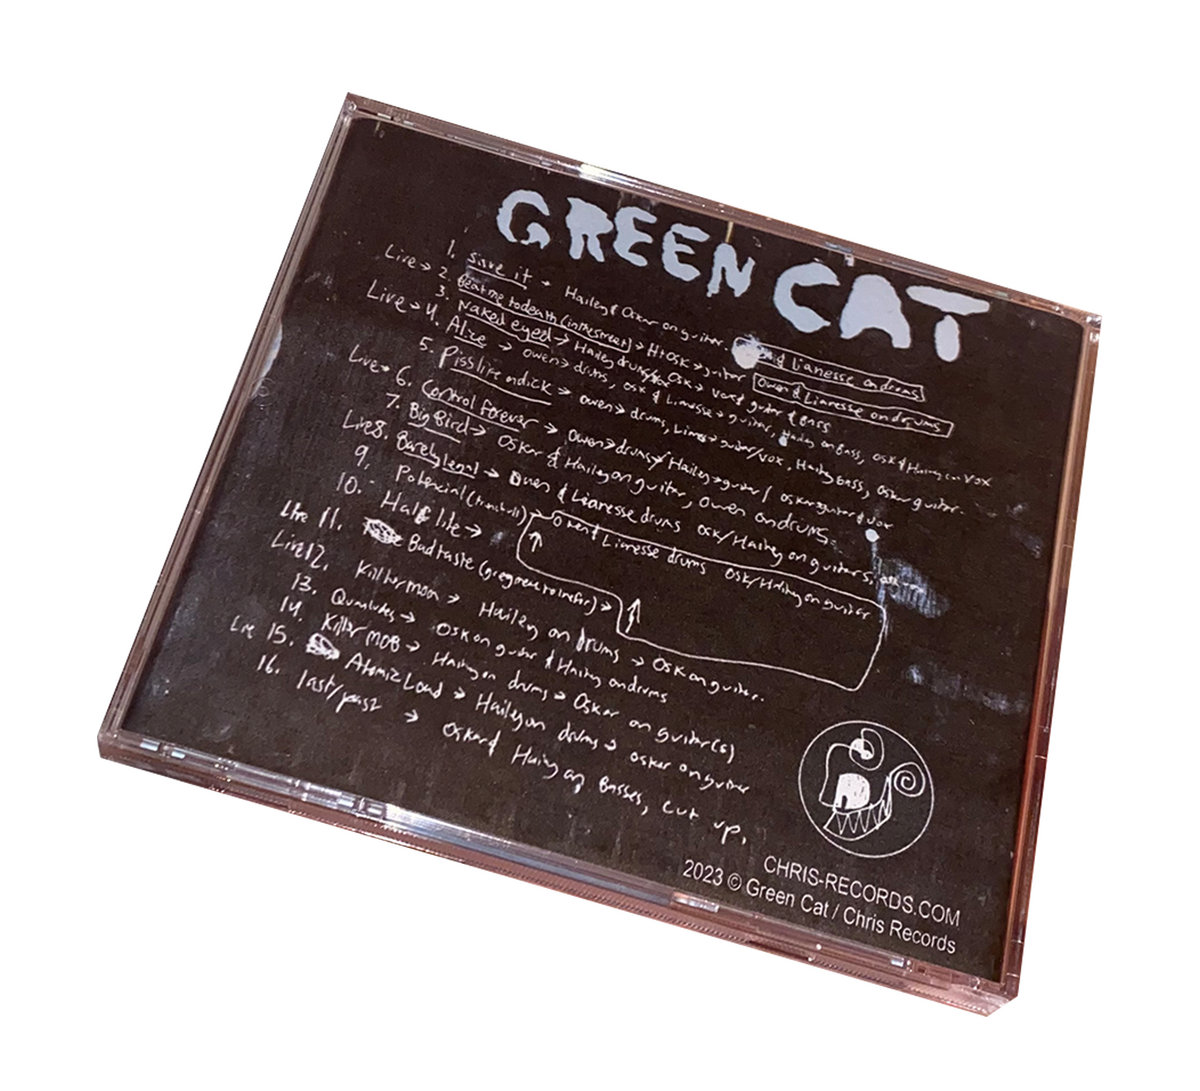 GREEN CAT
1. Sisre it → Hailey & Oskar on guitar. & Lianesse on drums
Live → 2. Beat me to death (in the street) → H+OSK → guitar Owen & Lianesse on drums
3. Naked eyed → Hailey drums/ Osk → vox & guitar & bass
Live → 4. Alize → Owen → drums, Osk & Lianesse → guitar, Hailey on Bass, OSK & Hailey on VOX
5. Piss like a dick → Owen → drums, Liane → guitar/vox, Hailey bass, Oskar guitar.
Live → 6. Control forever → Owen → drums → Hailey → guitar / Oskar guitar & vox
7. Big Bird → Oskar & Hailey on guitar, Owen on drums.
Live 8. Barely legal → Owen & Lianesse drums Osk/Hailey on guitars,
9. Potencial → Owen & Lianesse drums Osk/Hailey on guitar
10. Half life →
Live 11. Bad taste →
Live 12. Killer moon → Hailey on drums → Osk on guitar.
13. Qualudes → Osk on guitar & Hailey on drums
14. Killer MOB → Hailey on drums → Oskar on guitar(s)
Live 15. Atomic Load → Hailey on drums → oskar on guitar
16. last/past → Oskar & Hailey on Basses, cut up.
CHRIS-RECORDS.COM
2023 © Green Cat / Chris Records